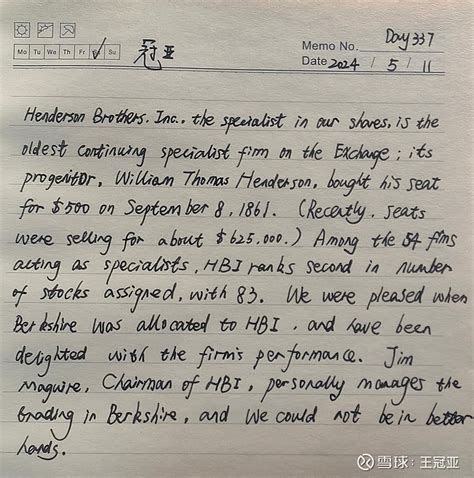 Mo Tu We Th Fr Sa Su
冠亚
Memo No. Day 337
Date 2024 / 5 / 11
Henderson Brothers. Inc., the specialist in our shares, is the
oldest continuing specialist firm on the Exchange; its
progenitor, William Thomas Henderson, bought his seat
for $500 on September 8, 1861. (Recently, seats
were selling for about $625,000.) Among the 54 firms
acting as specialists, HBI ranks second in number
of stocks assigned, with 83. We were pleased when
Berkshire was allocated to HBI, and have been
delighted with the firm's performance. Jim
Maguire, Chairman of HBI, personally manages the
trading in Berkshire, and we could not be in better
hands.
雪球：王冠亚